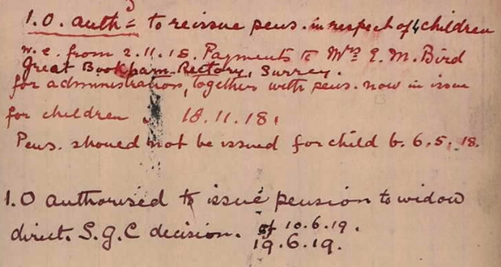 I.O. auth^d to reissue pens. in respect of 4 children
w.e. from 2.11.18. Payments to Mrs E. M. Bird
Great Bookham Rectory, Surrey.
for administration, together with pens. now in issue
for children 18.11.18.
Pens. should not be issued for child b. 6.5.18.
I.O authorised to issue pension to widow
direct. S.G.C decision. of 10.6.19.
19.6.19.